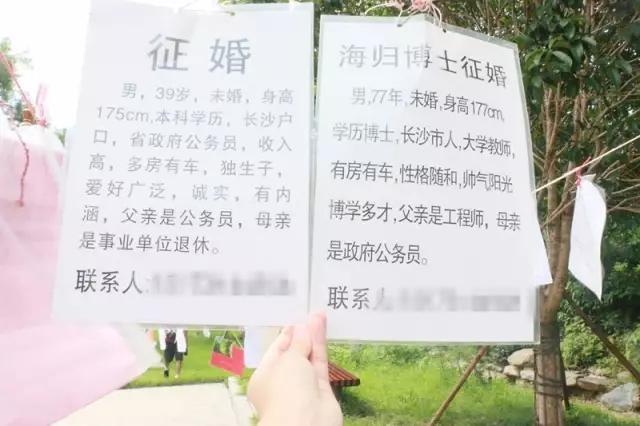 征婚
男，39岁，未婚，身高
175cm,本科学历，长沙户
口，省政府公务员，收入
高，多房有车，独生子，
爱好广泛，诚实，有内
涵，父亲是公务员，母亲
是事业单位退休。
联系人:
海归博士征婚
男,77年,未婚,身高177cm,
学历博士,长沙市人,大学教师,
有房有车,性格随和,帅气阳光
博学多才,父亲是工程师,母亲
是政府公务员。
联系人